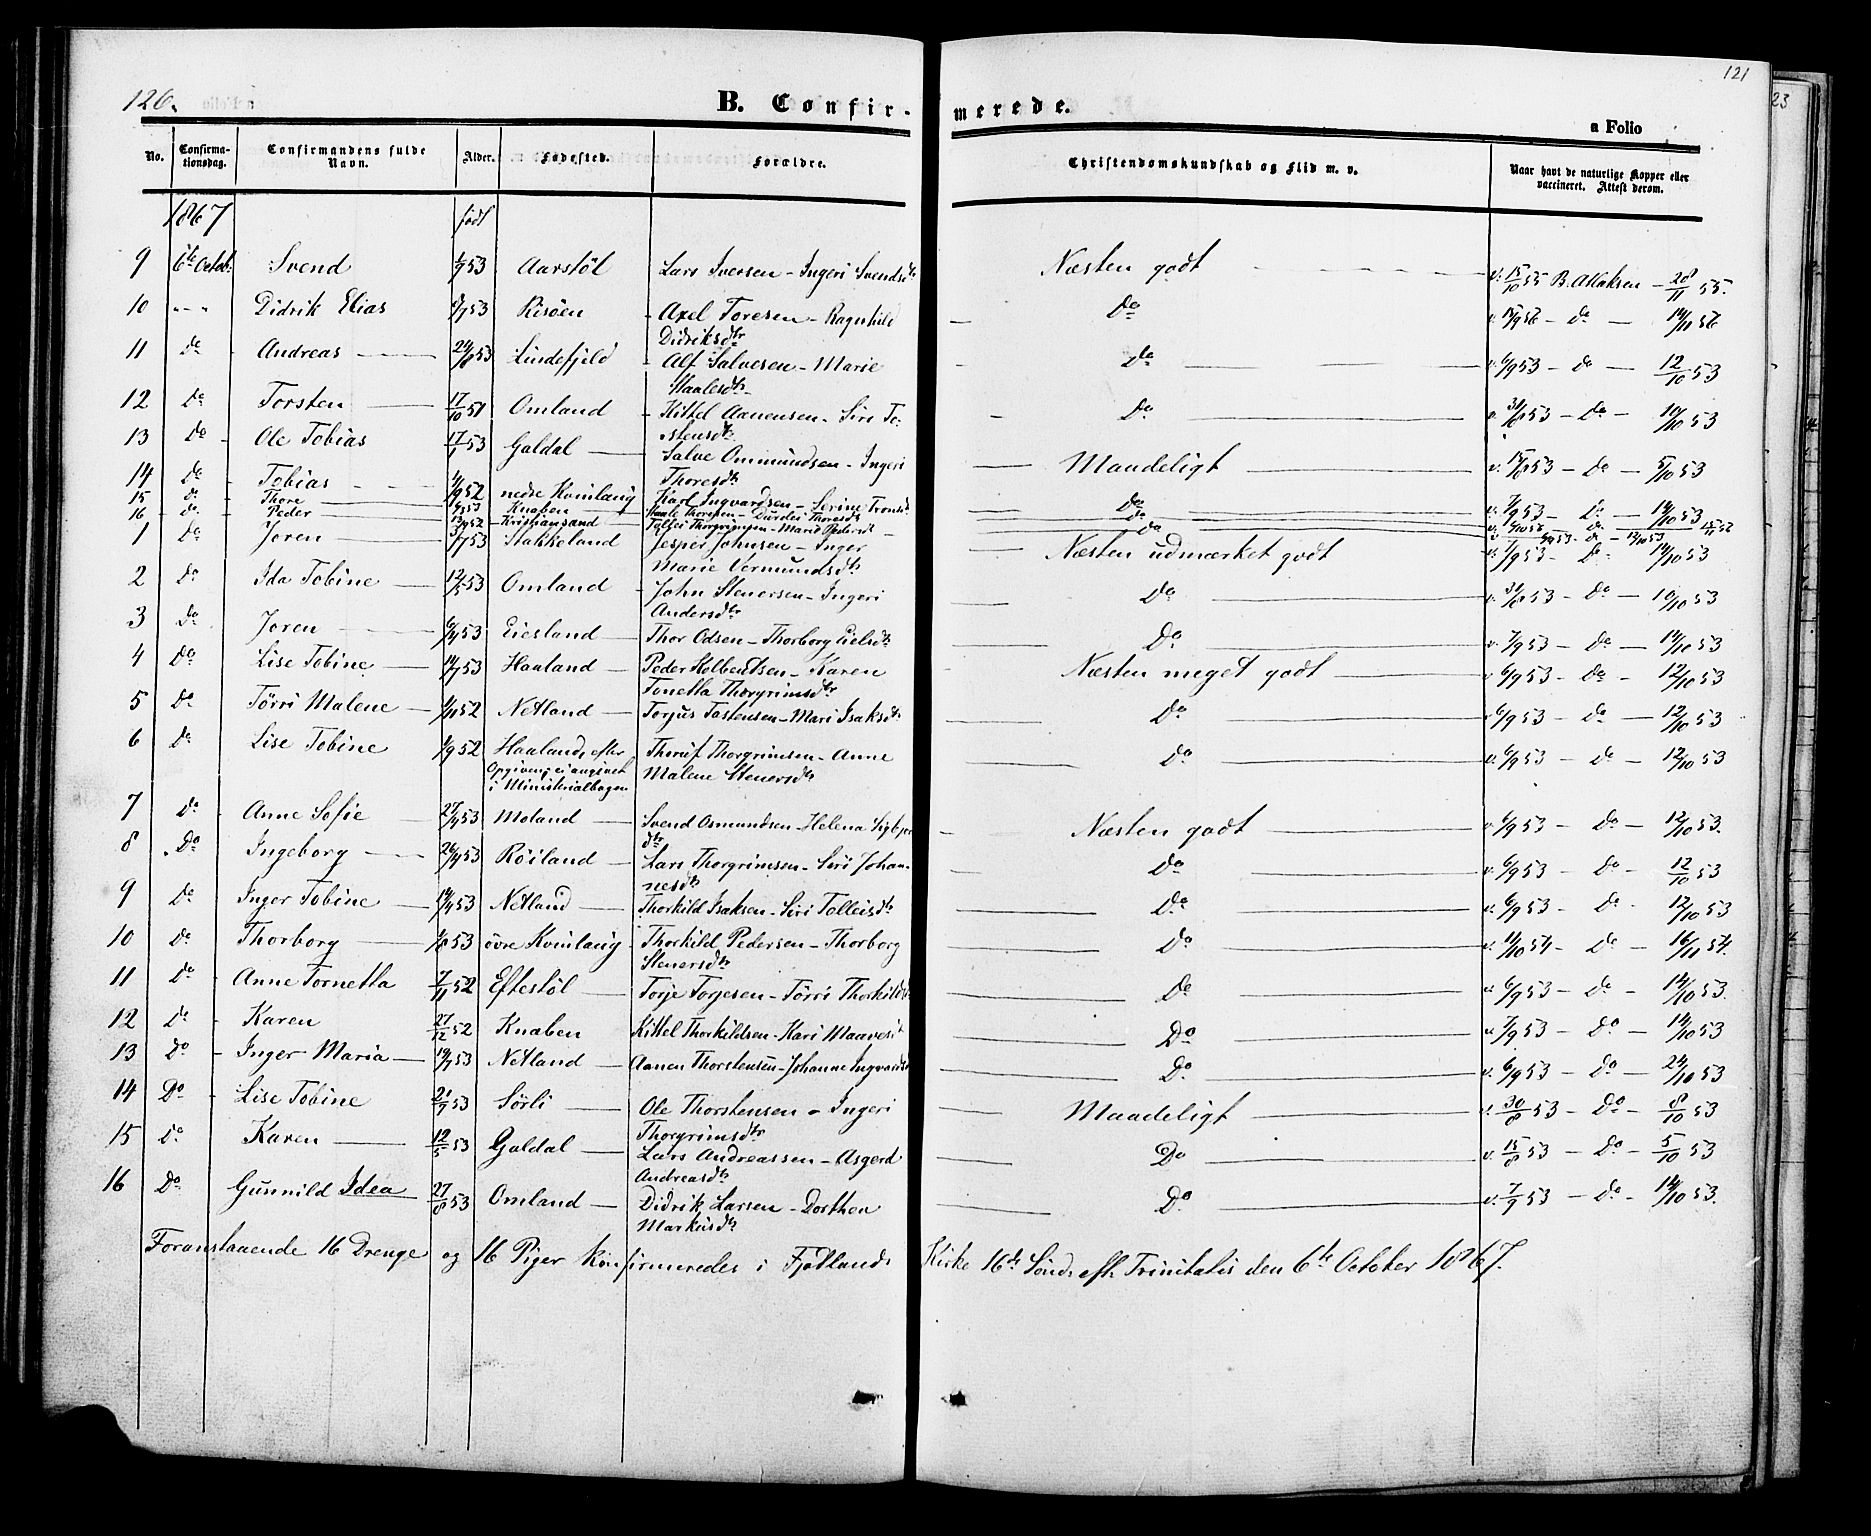 120.
121
23
B. Confir-
merede.
a Folio
No.
Confirma-
tionsdag.
Confirmandens fulde
Navn.
Alder.
Fødested.
Forældre.
Christendomskundskab og Flid m. v.
Naar havt de naturlige Kopper eller
vaccineret. Attest derom.
1867 født
9 6te Octob. Svend 53 Aarstöl Lars Iversen - Ingeri Svendsdtr Næsten godt v. 15/10 55 B. Aslaksen - 28/11 55.
10 - " - Didrik Elias 53 Risöen Axel Toresen - Ragnhild Do 56 - do - 14/11 56
Didriksdtr
11 Do Andreas 24/8 53 Lindefjeld Alf Salvesen - Marie Do v. 6/9 53 - do - 12/10 53
Staalesdtr
12 Do Torsten 17/10 51 Omland Kittel Aanensen - Siri To- Do v. 31/8 53 - Do - 10/10 53
stensdtr
13 Do Ole Tobias 17/1 53 Galdal Salve Ommundsen - Ingeri Maadeligt v. 15/8 53 - Do - 5/10 53
Thoresdtr
14 Do Tobias 52 nedre Kvinlaug Karl Ingvardsen - Serine Tronsd. Do v. 7/9 53 - Do - 14/10 53
15 do Thore 53 Knaben Thoresdtr Do
16 do Peder 52 Kristiansand Tollei Thorgrimsen - Marie Pedersdt Do - 12/10 53
1 Do Joren 53 Stakkeland Jesper Johnsen - Inger Næsten udmærket godt 53 - Do - 14/10 53
Marie Vermundsdtr
2 Do Ida Tobine 12/5 53 Omland John Stenersen - Ingeri Do v. 31/8 53 - Do - 10/10 53
Andersdtr
3 Do Joren 53 Eiesland Thor Odsen - Thorborg Eielsdtr Do v. 7/9 53 - Do - 14/10 53
4 Do Lise Tobine 53 Haaland Peder Kolbentsen - Karen Næsten meget godt v. 6/9 53 - Do - 12/10 53
Tonetta Thorgrimsdtr
5 Do Törri Malene 52 Netland Torjus Tostensen - Mari Isaksdtr Do v. 6/9 53 - Do - 12/10 53
6 Do Lise Tobine 52 Haaland, efter Thorgrimsen - Anne Do v. 6/9 53 - Do - 12/10 53
Opgivende ei angivet Malene Stenersdtr
i Ministerialbogen
7 Do Anne Sofie 53 Moland Svend Osmundsen - Helena Sigbjor Næsten godt v. 6/9 53 - Do - 12/10 53.
dtr
8 Do Ingeborg 53 Röiland Lars Thorgrimsen - Siri Johan- Do v. 6/9 53 - Do - 12/10 53
nesdtr
9 Do Inger Tobine 53 Netland Thorkild Isaksen - Siri Tolleisdtr Do v. 6/9 53 - Do - 12/10 53
10 Do Thorborg 53 övre Kvinlaug Thorkild Pedersen - Thorborg Do v. 11/10 54 - Do - 16/11 54.
Stenersdtr
11 Do Anne Tornetta 7/11 52 Eftestöl Torje Torjesen - Törri Thorkildsd. Do v. 6/9 53 - Do - 14/10 53.
12 Do Karen 27/12 52 Knaben Kittel Thorkildsen - Kari Maavesd Do v. 7/9 53 - Do - 14/10 53
13 Do Inger Maria 53 Netland Aanen Thorstensen - Johanne Ingvardsd Do v. 6/9 53 - Do - 24/10 53
14 Do Lise Tobine 53 Sörli Ole Thorstensen - Ingeri Maadeligt v. 30/8 53 - Do - 8/10 53
Thorgrimsdtr
15 Do Karen 12/5 53 Galdal Lars Andreassen - Asgerd Do v. 15/8 53 - Do - 5/10 53
Andreasdtr
16 Do Gunnild Idea 27/8 53 Omland Didrik Larsen - Dorthea Do v. 7/9 53 - Do - 14/10 53.
Markusdtr
Foranstaaende 16 Drenge og 16 Piger konfirmeredes i Fjotlands Kirke 16de Sönd. eft. Trinitatis den 6te October 1867.